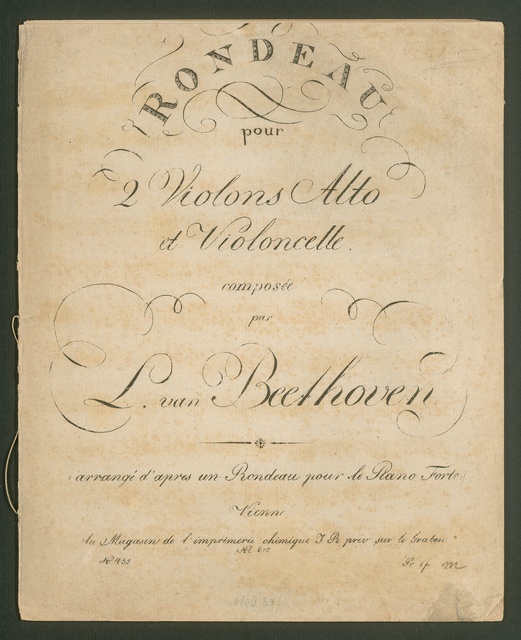 RONDEAU
pour
2 Violons Alto
et Violoncelle.
composée
par
L. van Beethoven
(arrangé d'apres un Rondeau pour le Piano Forte)
Vienne
au Magasin de l'imprimerie chimique I. R. priv sur le Graben